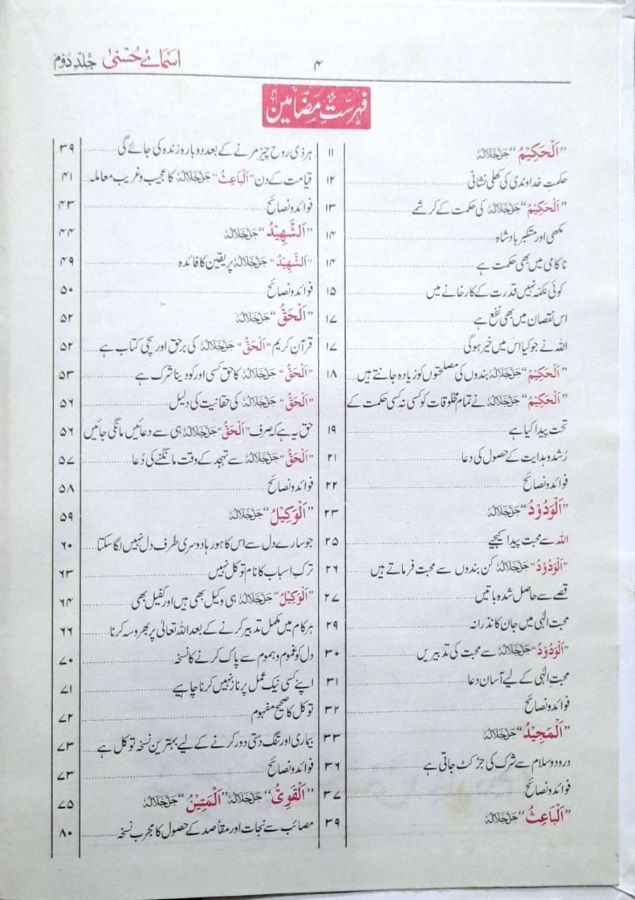 اسمائے حسنیٰ جلد دوم
۴
فہرستِ مضامین
”اَلْحَکِیْمُ“ جل جلالہ ۱۱
حکمتِ خداوندی کی کھلی نشانی ۱۲
”اَلْحَکِیْمُ“ جل جلالہ کی حکمت کے کرشمے ۱۳
مکھی اور متکبر بادشاہ ۱۴
ناکامی میں بھی حکمت ہے ۱۴
کوئی نکما نہیں قدرت کے کارخانے میں ۱۵
اس نقصان میں بھی نفع ہے ۱۷
اللہ نے جو کیا اس میں خیر ہوگی ۱۷
”اَلْحَکِیْمُ“ جل جلالہ بندوں کی مصلحتوں کو زیادہ جانتے ہیں ۱۸
”اَلْحَکِیْمُ“ جل جلالہ نے تمام مخلوقات کو کسی نہ کسی حکمت کے
تحت پیدا کیا ہے ۱۹
رُشد و ہدایت کے حصول کی دعا ۲۱
فوائد و نصائح ۲۲
”اَلْوَدُوْدُ“ جل جلالہ ۲۳
اللہ سے محبت پیدا کیجیے ۲۵
”اَلْوَدُوْدُ“ جل جلالہ کن بندوں سے محبت فرماتے ہیں ۲۶
قصے سے حاصل شدہ باتیں ۲۷
محبتِ الٰہی میں جان کا نذرانہ ۲۹
”اَلْوَدُوْدُ“ جل جلالہ سے محبت کی تدبیریں ۳۰
محبتِ الٰہی کے لیے آسان دعا ۳۱
فوائد و نصائح ۳۲
”اَلْمَجِیْدُ“ جل جلالہ ۳۳
درود و سلام سے شرک کی جڑ کٹ جاتی ہے ۳۶
فوائد و نصائح ۳۷
”اَلْبَاعِثُ“ جل جلالہ ۳۹
ہر ذی روح چیز مرنے کے بعد دوبارہ زندہ کی جائے گی ۳۹
قیامت کے دن ”اَلْبَاعِثُ“ جل جلالہ کا عجیب و غریب معاملہ ۴۱
فوائد و نصائح ۴۳
”اَلشَّھِیْدُ“ جل جلالہ ۴۴
”اَلشَّھِیْدُ“ جل جلالہ پر یقین کا فائدہ ۴۹
فوائد و نصائح ۵۰
”اَلْحَقُّ“ جل جلالہ ۵۲
قرآن کریم ”اَلْحَقُّ“ جل جلالہ کی برحق اور سچی کتاب ہے ۵۲
”اَلْحَقُّ“ جل جلالہ کا حق کسی اور کو دینا شرک ہے ۵۳
”اَلْحَقُّ“ جل جلالہ کی حقانیت کی دلیل ۵۶
حق یہ ہے کہ صرف ”اَلْحَقُّ“ جل جلالہ ہی سے دعائیں مانگی جائیں ۵۶
”اَلْحَقُّ“ جل جلالہ سے تہجد کے وقت مانگنے کی دُعا ۵۷
فوائد و نصائح ۵۸
”اَلْوَکِیْلُ“ جل جلالہ ۵۹
جو سارے دل سے اس کا ہو رہا دوسری طرف دل نہیں لگا سکتا ۶۰
ترکِ اسباب کا نام توکل نہیں ۶۳
”اَلْوَکِیْلُ“ جل جلالہ ہی وکیل بھی ہیں اور کفیل بھی ۶۴
ہر کام میں مکمل تدبیر کرنے کے بعد اللہ تعالیٰ پر بھروسہ کرنا ۶۶
دل کو غموم و ہموم سے پاک کرنے کا نسخہ ۷۰
اپنے کسی نیک عمل پر ناز نہیں کرنا چاہیے ۷۱
توکل کا صحیح مفہوم ۷۲
بیماری اور تنگ دستی دور کرنے کے لیے بہترین نسخہ توکل ہے ۷۳
فوائد و نصائح ۷۳
”اَلْقَوِیُّ“ جل جلالہ ”اَلْمَتِیْنُ“ جل جلالہ ۷۵
مصائب سے نجات اور مقاصد کے حصول کا مجرب نسخہ ۸۰